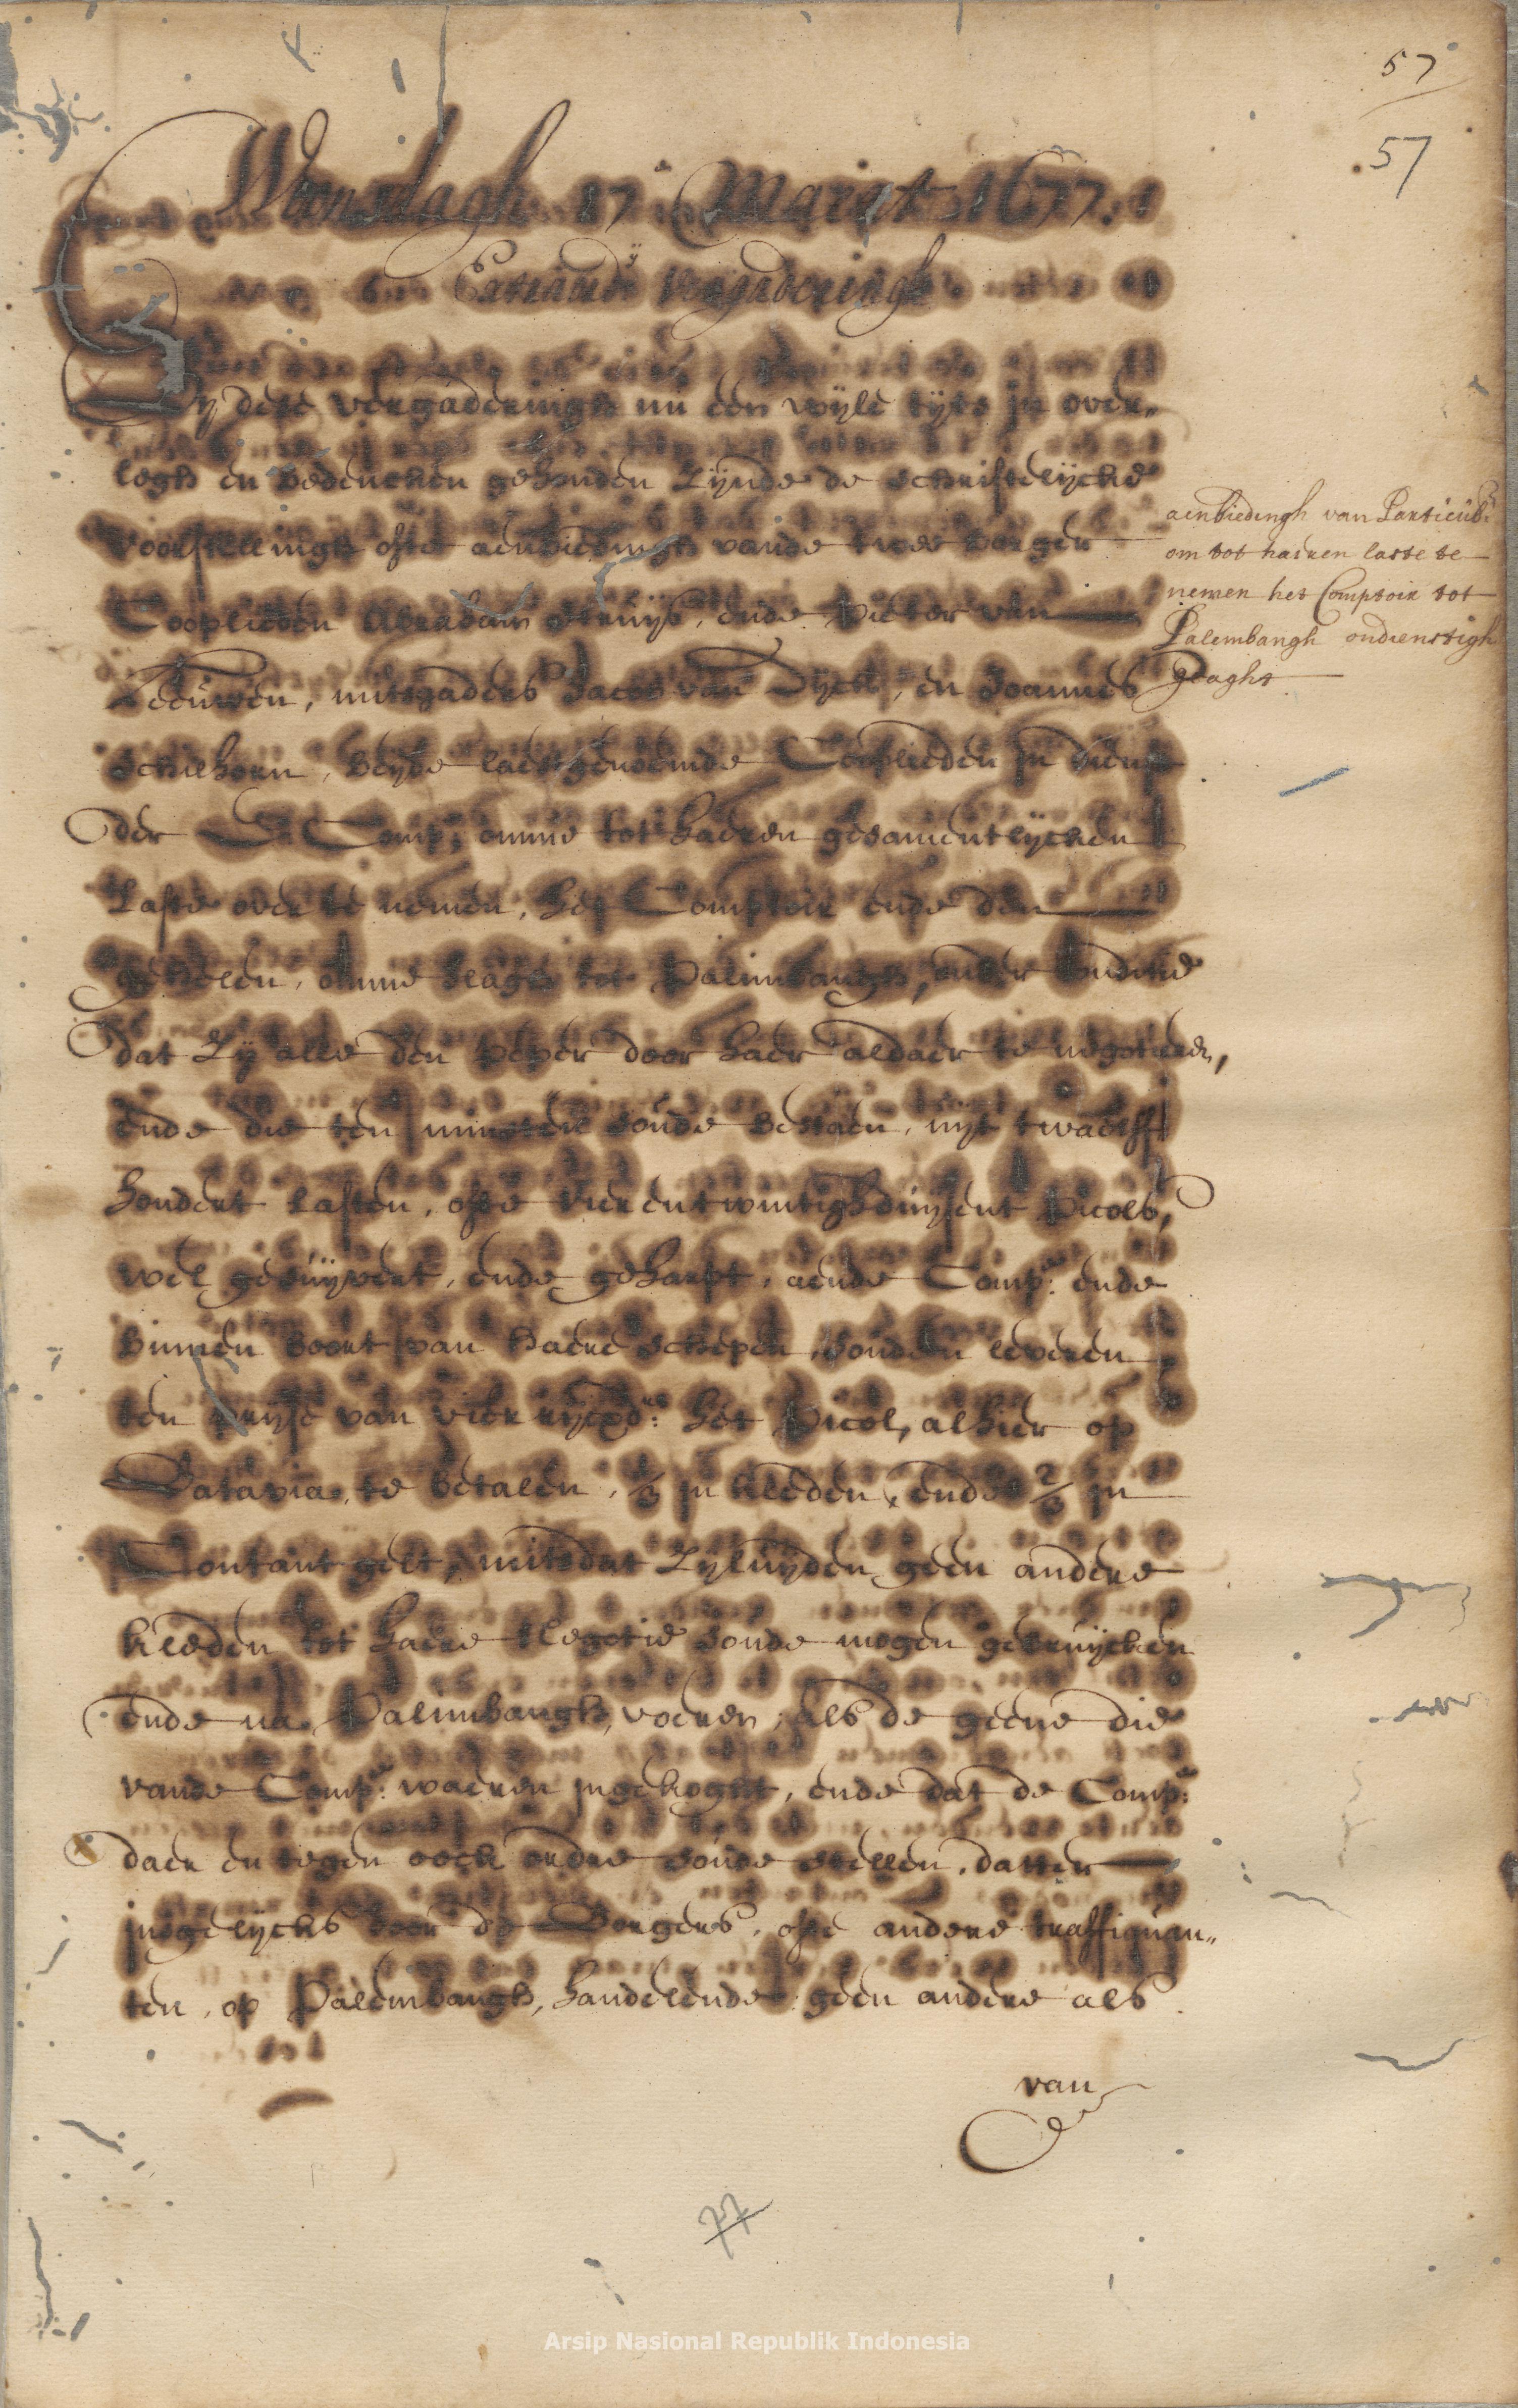 57
57
Woonsdagh 17 Maert 1677.
Extraord: vergaderingh
By dese vergaderingh nu een wyle tyts in over„
legh en bedencken gehouden zynde de schriftelycke
voorstellingh ofte aenbiedingh vande twee borger
Cooplieden Abraham Struijs, ende Pieter van
Leeuwen, mitsgaders Jacob van Dyck, en Joannes
beyde laestgenoemde Cooplieden in dienst
der E Comp:, omme tot haeren gesamentlycken
laste over te nemen, het Comptoir ende den
geheelen ommeslagh tot Palimbangh, onder
dat zy alle den peper door haer aldaer te negotieren,
ende die ten minsten soude bestaen, uyt twaelff
hondert lasten, ofte vierentwintighduysent Picols,
wel gesuyvert, ende geharpt, aende Comp: ende
binnen boort van haere schepen, souden leveren
ten pryse van vier ryxd:s het Picol, alhier op
Batavia, te betalen, 1/3 in kleden, ende 2/3 in
Contant gelt, mits dat zyluyden geen andere
kleden tot haere Negotie soude mogen gebruycken
ende na Palimbangh, voeren, als de geene die
vande Comp: waeren ingekoght, ende dat de Comp:
daer en tegen oock ordre soude stellen, datter
insgelycks door de Borgers, ofte andere traffiquan„
ten, op Palembangh, handelende geen andere als
van
aenbiedingh van Particul:
om tot haeren laste te
nemen het Comptoir tot
Palembangh ondienstigh
geaght
77
Arsip Nasional Republik Indonesia